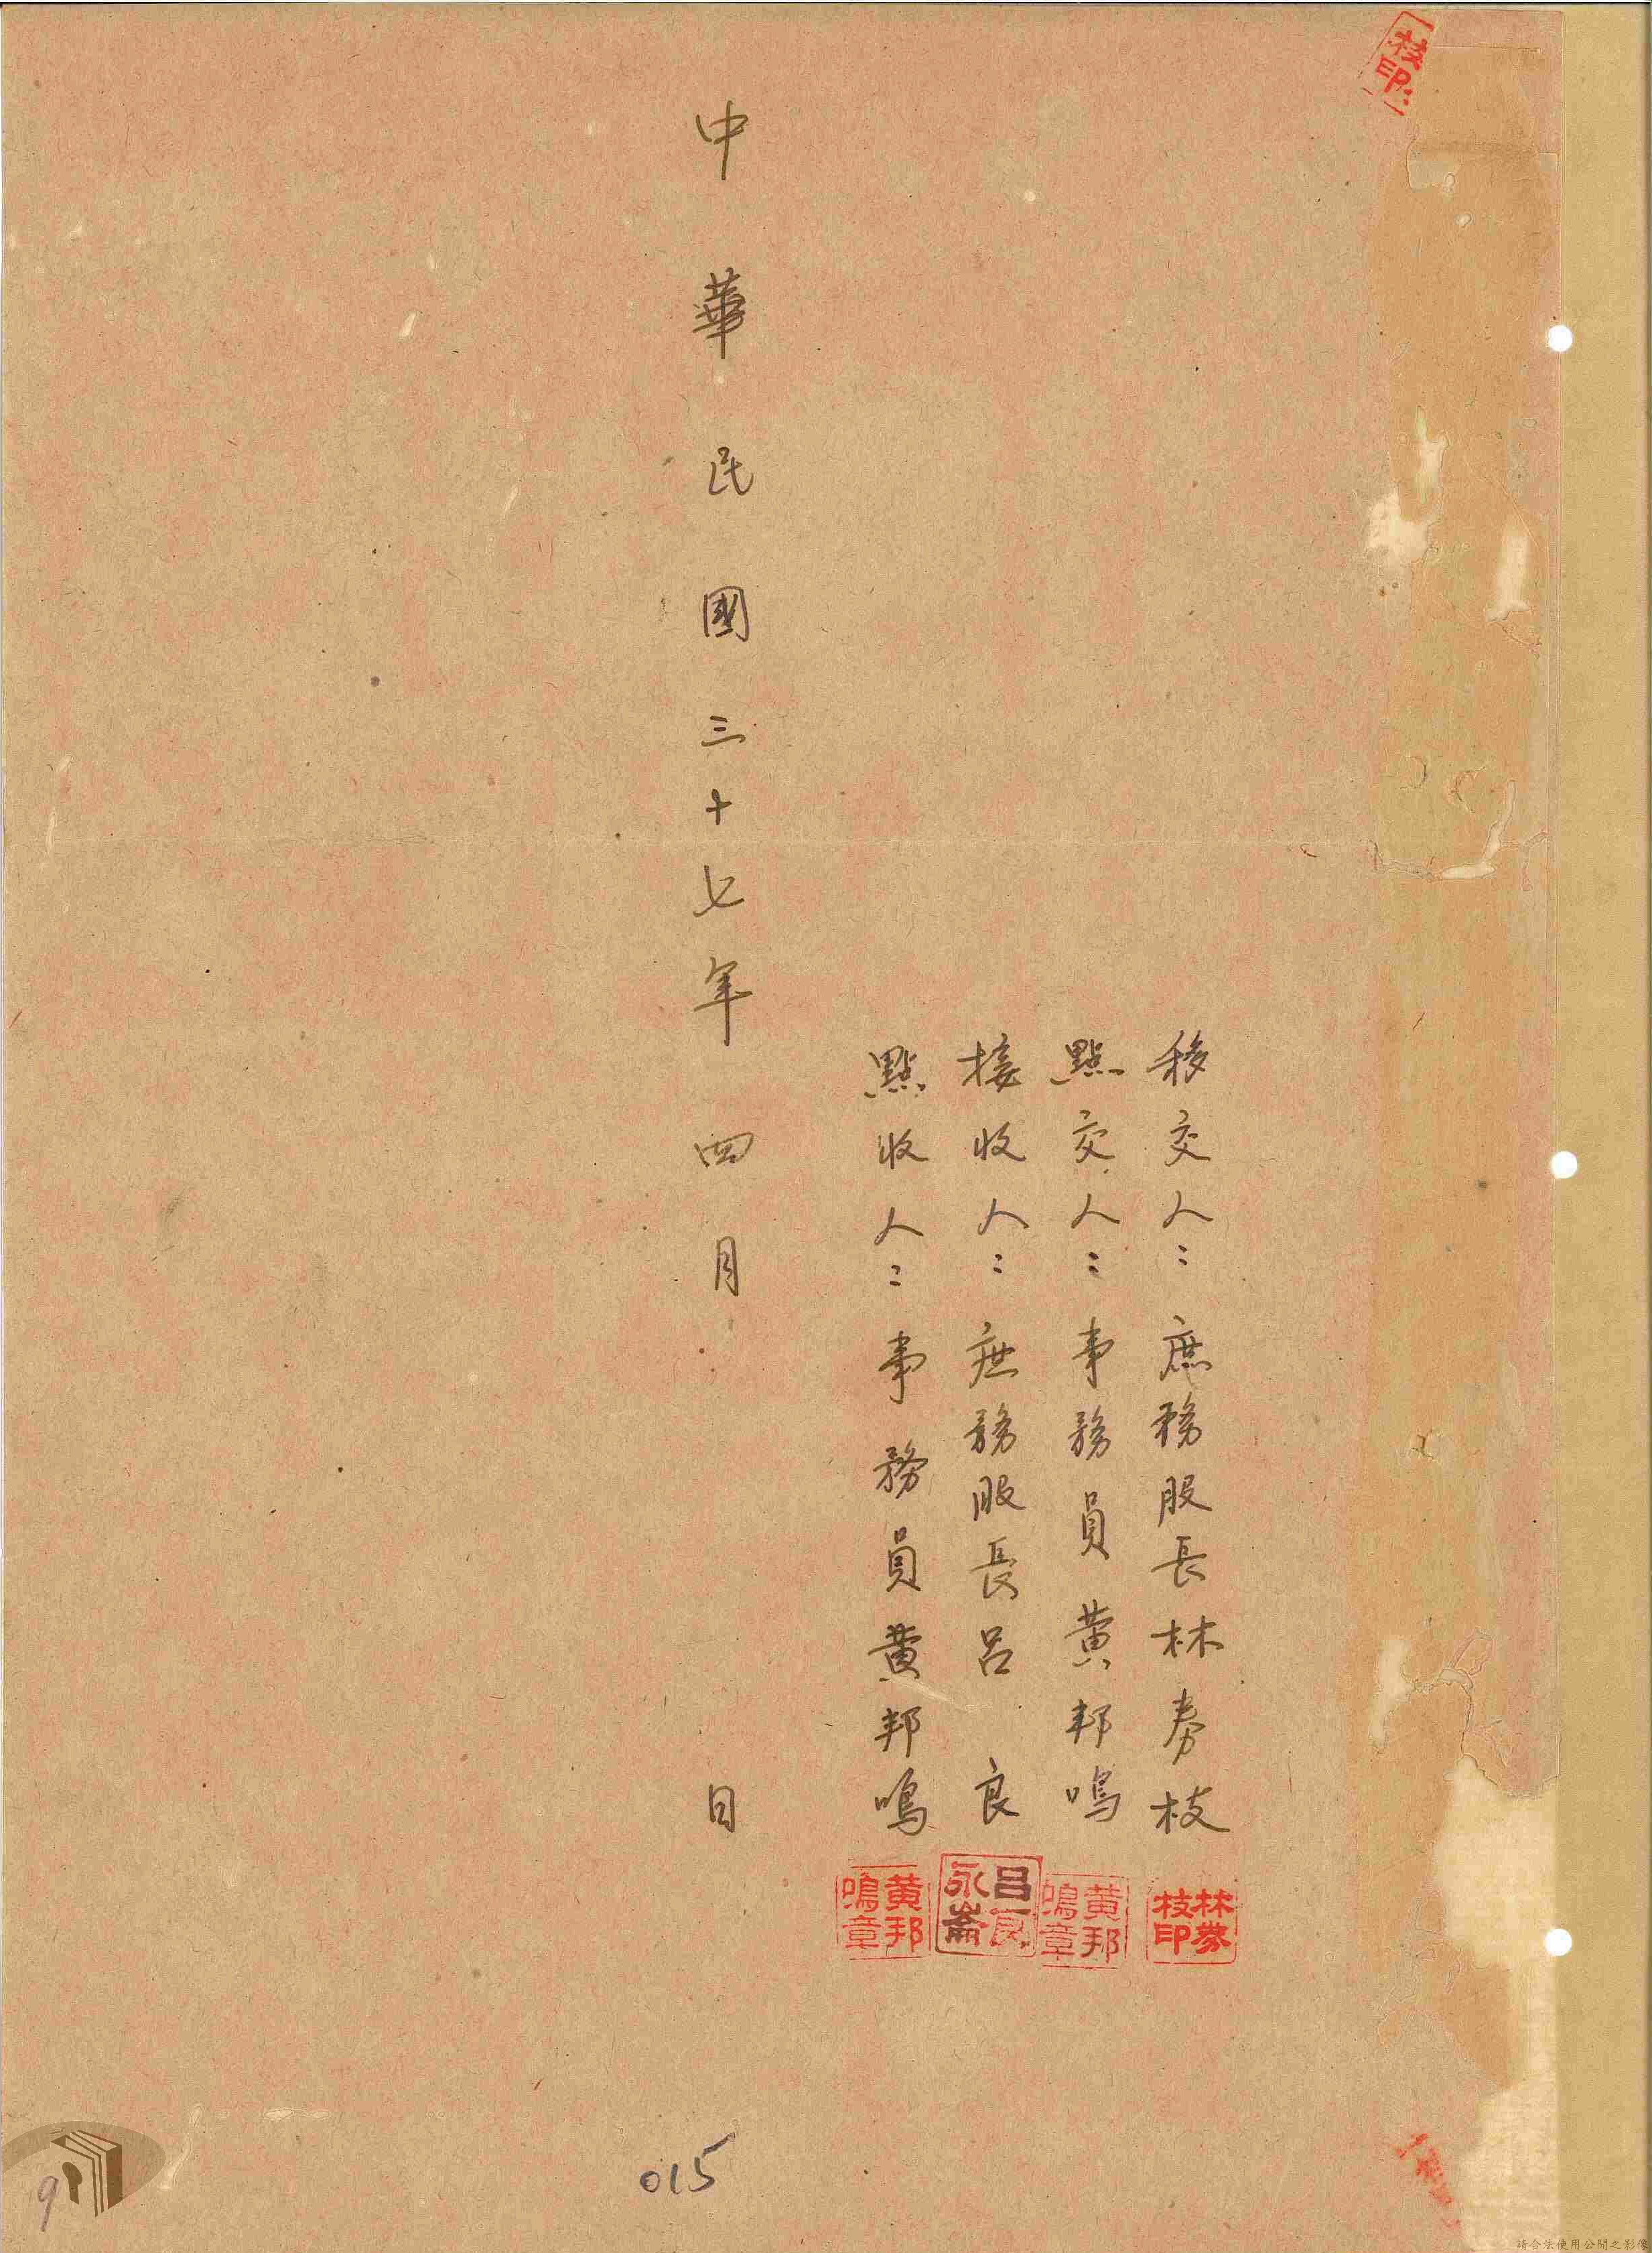 移交人：庶務股長林蓁枝
點交人：事務員黃邦鳴
接收人：庶務股長呂 良
點收人：事務員黃邦鳴
枝印
黃邦鳴章
呂良永崙
黃邦鳴章
中華民國三十七年四月 日
015
9
請合法使用公開之影像